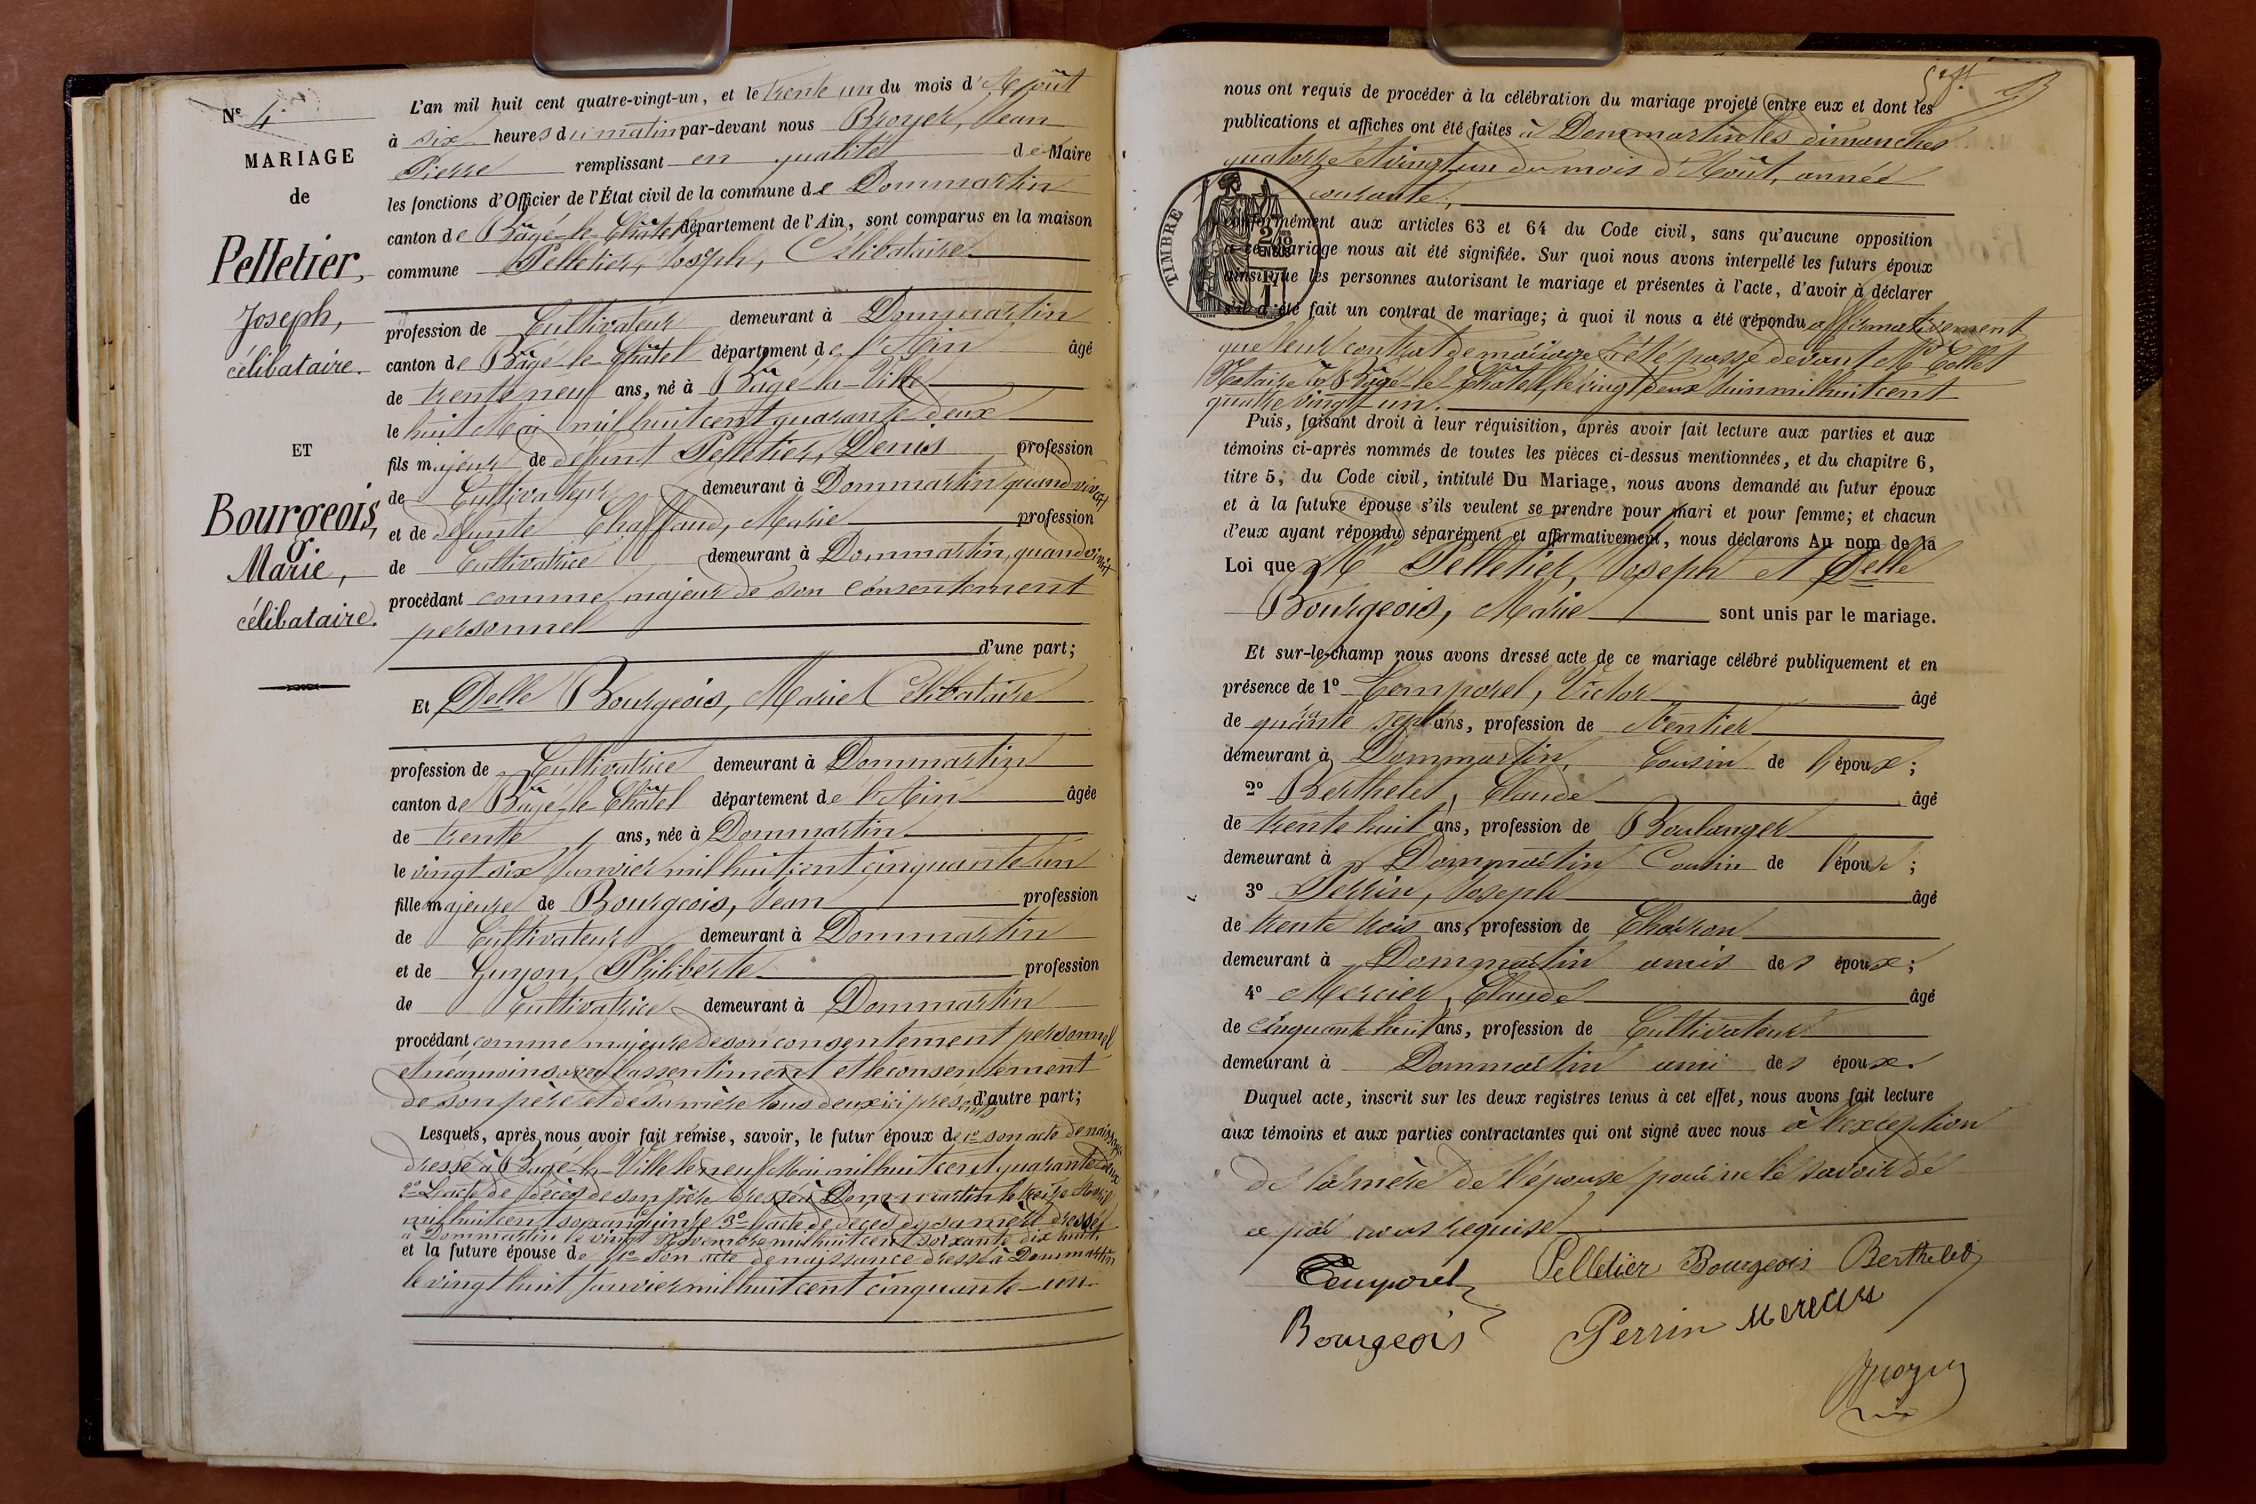 N° 4
MARIAGE
de
Pelletier,
Joseph,
célibataire.
ET
Bourgeois,
Marie,
célibataire.
L'an mil huit cent quatre-vingt-un, et le trente un du mois d'Août
à six heures du matin par-devant nous Broyer, Jean
Pierre remplissant en qualité de Maire
les fonctions d'Officier de l'État civil de la commune de Dommartin
canton de Bâgé-le-Châtel, département de l'Ain, sont comparus en la maison
commune Pelletier, Joseph, Célibataire
profession de Cultivateur demeurant à Dommartin
canton de Bâgé-le-Châtel département de l'Ain âgé
de trente neuf ans, né à Bâgé-la-Ville
le huit Mai mil huit cent quarante deux
fils majeur de défunt Pelletier, Denis profession
de Cultivateur demeurant à Dommartin quand vivait
et de défunte Chaffaud, Marie profession
de Cultivatrice demeurant à Dommartin, quand vivait
procédant comme majeur de son consentement
personnel
d'une part;
Et Delle Bourgeois, Marie Célibataire
profession de Cultivatrice demeurant à Dommartin
canton de Bâgé-le-Châtel département de l'Ain âgée
de trente ans, née à Dommartin
le vingt six Janvier mil huit cent cinquante un
fille majeure de Bourgeois, Jean profession
de Cultivateur demeurant à Dommartin
et de Guyon, Philiberte profession
de Cultivatrice demeurant à Dommartin
procédant comme majeure de son consentement personnel
et néanmoins avec l'assentiment et le consentement
de son père et de sa mère tous deux ici présents d'autre part;
Lesquels, après nous avoir fait remise, savoir, le futur époux de 1° son acte de naissance
dressé à Bâgé-la-Ville le neuf Mai mil huit cent quarante deux
2° L'acte de décès de son père dressé à Dommartin le treize Avril
mil huit cent soixante quinze 3° l'acte de décès de sa mère dressé
à Dommartin le vingt Novembre mil huit cent soixante dix huit,
et la future épouse de 1° son acte de naissance dressé à Dommartin
le vingt huit Janvier mil huit cent cinquante-un
nous ont requis de procéder à la célébration du mariage projeté entre eux et dont les
publications et affiches ont été faites à Dommartin les dimanches
quatorze et vingt un du mois d'Août, année
courante,
TIMBRE
conformément aux articles 63 et 64 du Code civil, sans qu'aucune opposition
à ce mariage nous ait été signifiée. Sur quoi nous avons interpellé les futurs époux
ainsi que les personnes autorisant le mariage et présentes à l'acte, d'avoir à déclarer
s'il a été fait un contrat de mariage; à quoi il nous a été répondu affirmativement
que leur contrat de mariage a été passé devant Me Collet
Notaire à Bâgé-le-Châtel, le vingt deux Juin mil huit cent
quatre vingt un.
Puis, faisant droit à leur réquisition, après avoir fait lecture aux parties et aux
témoins ci-après nommés de toutes les pièces ci-dessus mentionnées, et du chapitre 6,
titre 5, du Code civil, intitulé Du Mariage, nous avons demandé au futur époux
et à la future épouse s'ils veulent se prendre pour mari et pour femme; et chacun
d'eux ayant répondu séparément et affirmativement, nous déclarons Au nom de la
Loi que Mr Pelletier, Joseph et Delle
Bourgeois, Marie sont unis par le mariage.
Et sur-le-champ nous avons dressé acte de ce mariage célébré publiquement et en
présence de 1° Temporel, Victor âgé
de quarante sept ans, profession de Rentier
demeurant à Dommartin, Cousin de l'époux;
2° Berthelet, Claude âgé
de trente huit ans, profession de Boulanger
demeurant à Dommartin Cousin de l'épouse;
3° Perrin, Joseph âgé
de trente trois ans, profession de Charron
demeurant à Dommartin amis des époux;
4° Mercier, Claude âgé
de cinquante huit ans, profession de Cultivateur
demeurant à Dommartin ami des époux.
Duquel acte, inscrit sur les deux registres tenus à cet effet, nous avons fait lecture
aux témoins et aux parties contractantes qui ont signé avec nous à l'exception
de la mère de l'épouse pour ne le savoir de
ce par nous requise
Temporel Pelletier Bourgeois Berthelet
Bourgeois Perrin Mercier
Broyer